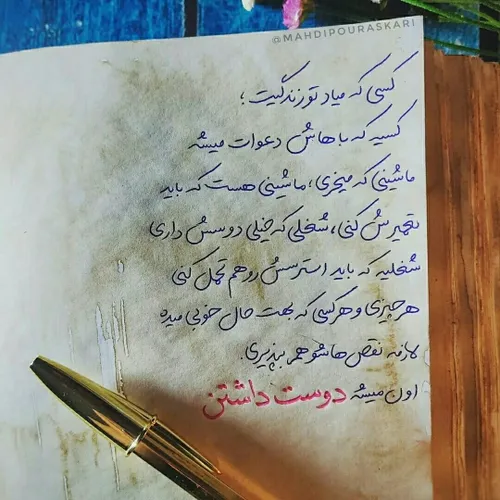 @MAHDIPOURASKARI
کسی که میاد تو زندگیت؛
کسیه که باهاش دعوات میشه
ماشینی که میخری، ماشینی هست که باید
تعمیرش کنی، شغلی که خیلی دوسش داری
شغلیه که باید استرسش رو هم تحمل کنی
هر چیزی و هر کسی که بهت حال خوبی میده
لازمه نقص هاشو هم بپذیری.
اون میشه دوست داشتن